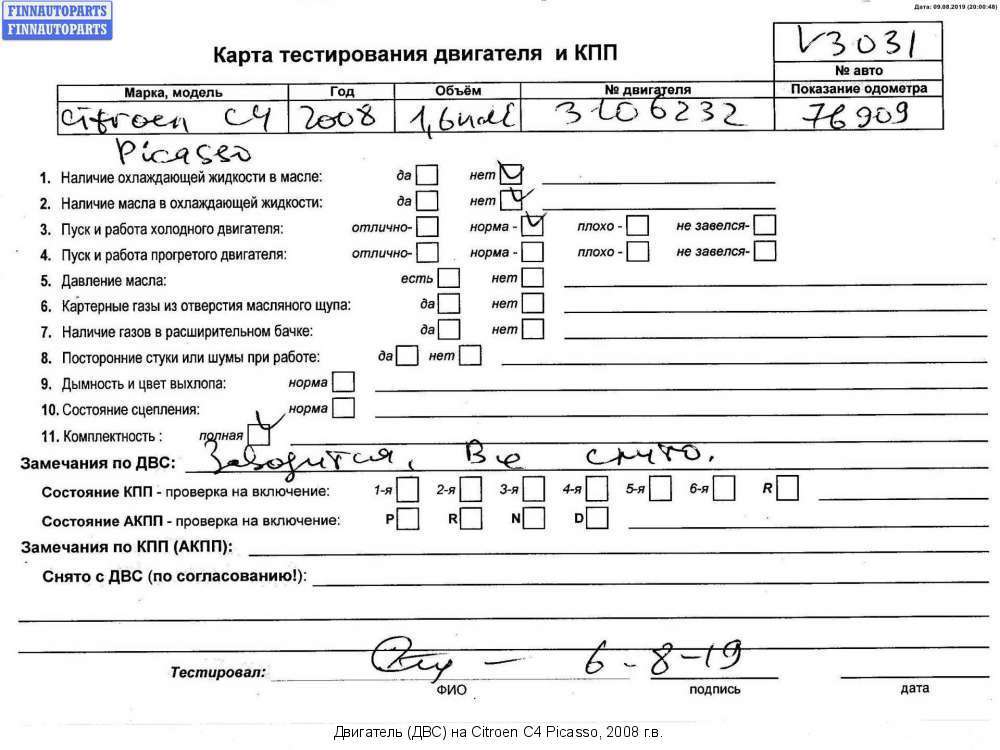 FINNAUTOPARTS
FINNAUTOPARTS
Дата: 09.08.2019 (20:00:48)
Карта тестирования двигателя и КПП
V3031
№ авто
Марка, модель Год Объём № двигателя Показание одометра
Citroen C4 2008 1,6 3106232 76909
Picasso
1. Наличие охлаждающей жидкости в масле: да нет
2. Наличие масла в охлаждающей жидкости: да нет
3. Пуск и работа холодного двигателя: отлично- норма - плохо - не завелся-
4. Пуск и работа прогретого двигателя: отлично- норма - плохо - не завелся-
5. Давление масла: есть нет
6. Картерные газы из отверстия масляного щупа: да нет
7. Наличие газов в расширительном бачке: да нет
8. Посторонние стуки или шумы при работе: да нет
9. Дымность и цвет выхлопа: норма
10. Состояние сцепления: норма
11. Комплектность : полная
Замечания по ДВС: Заводится, Все
Состояние КПП - проверка на включение: 1-я 2-я 3-я 4-я 5-я 6-я R
Состояние АКПП - проверка на включение: P R N D
Замечания по КПП (АКПП):
Снято с ДВС (по согласованию!):
Тестировал: 6-8-19
ФИО подпись дата
Двигатель (ДВС) на Citroen C4 Picasso, 2008 г.в.